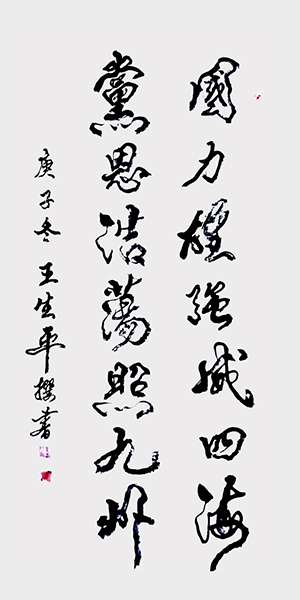 國力雄強威四海
黨恩浩蕩照九州
庚子冬王生平撰書